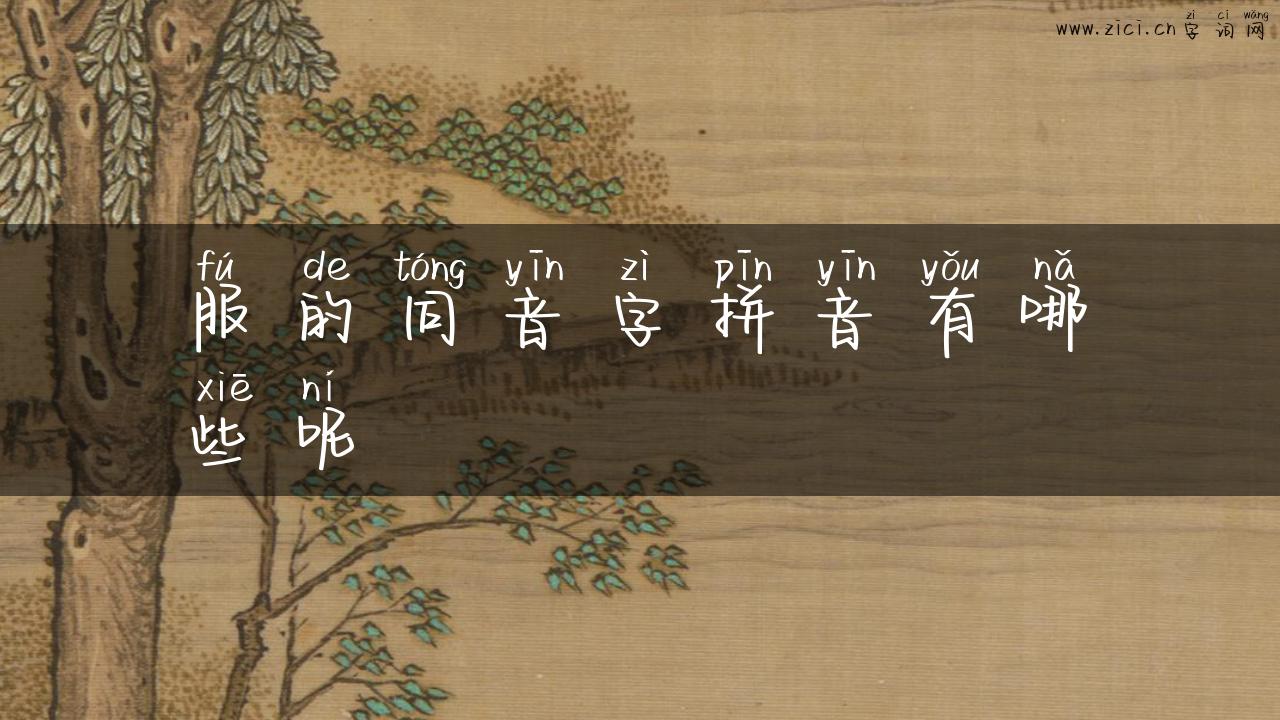 zì cí wǎng
www.zici.cn 字词网
fú de tóng yīn zì pīn yīn yǒu nǎ
服的同音字拼音有哪
xiē ní
些呢